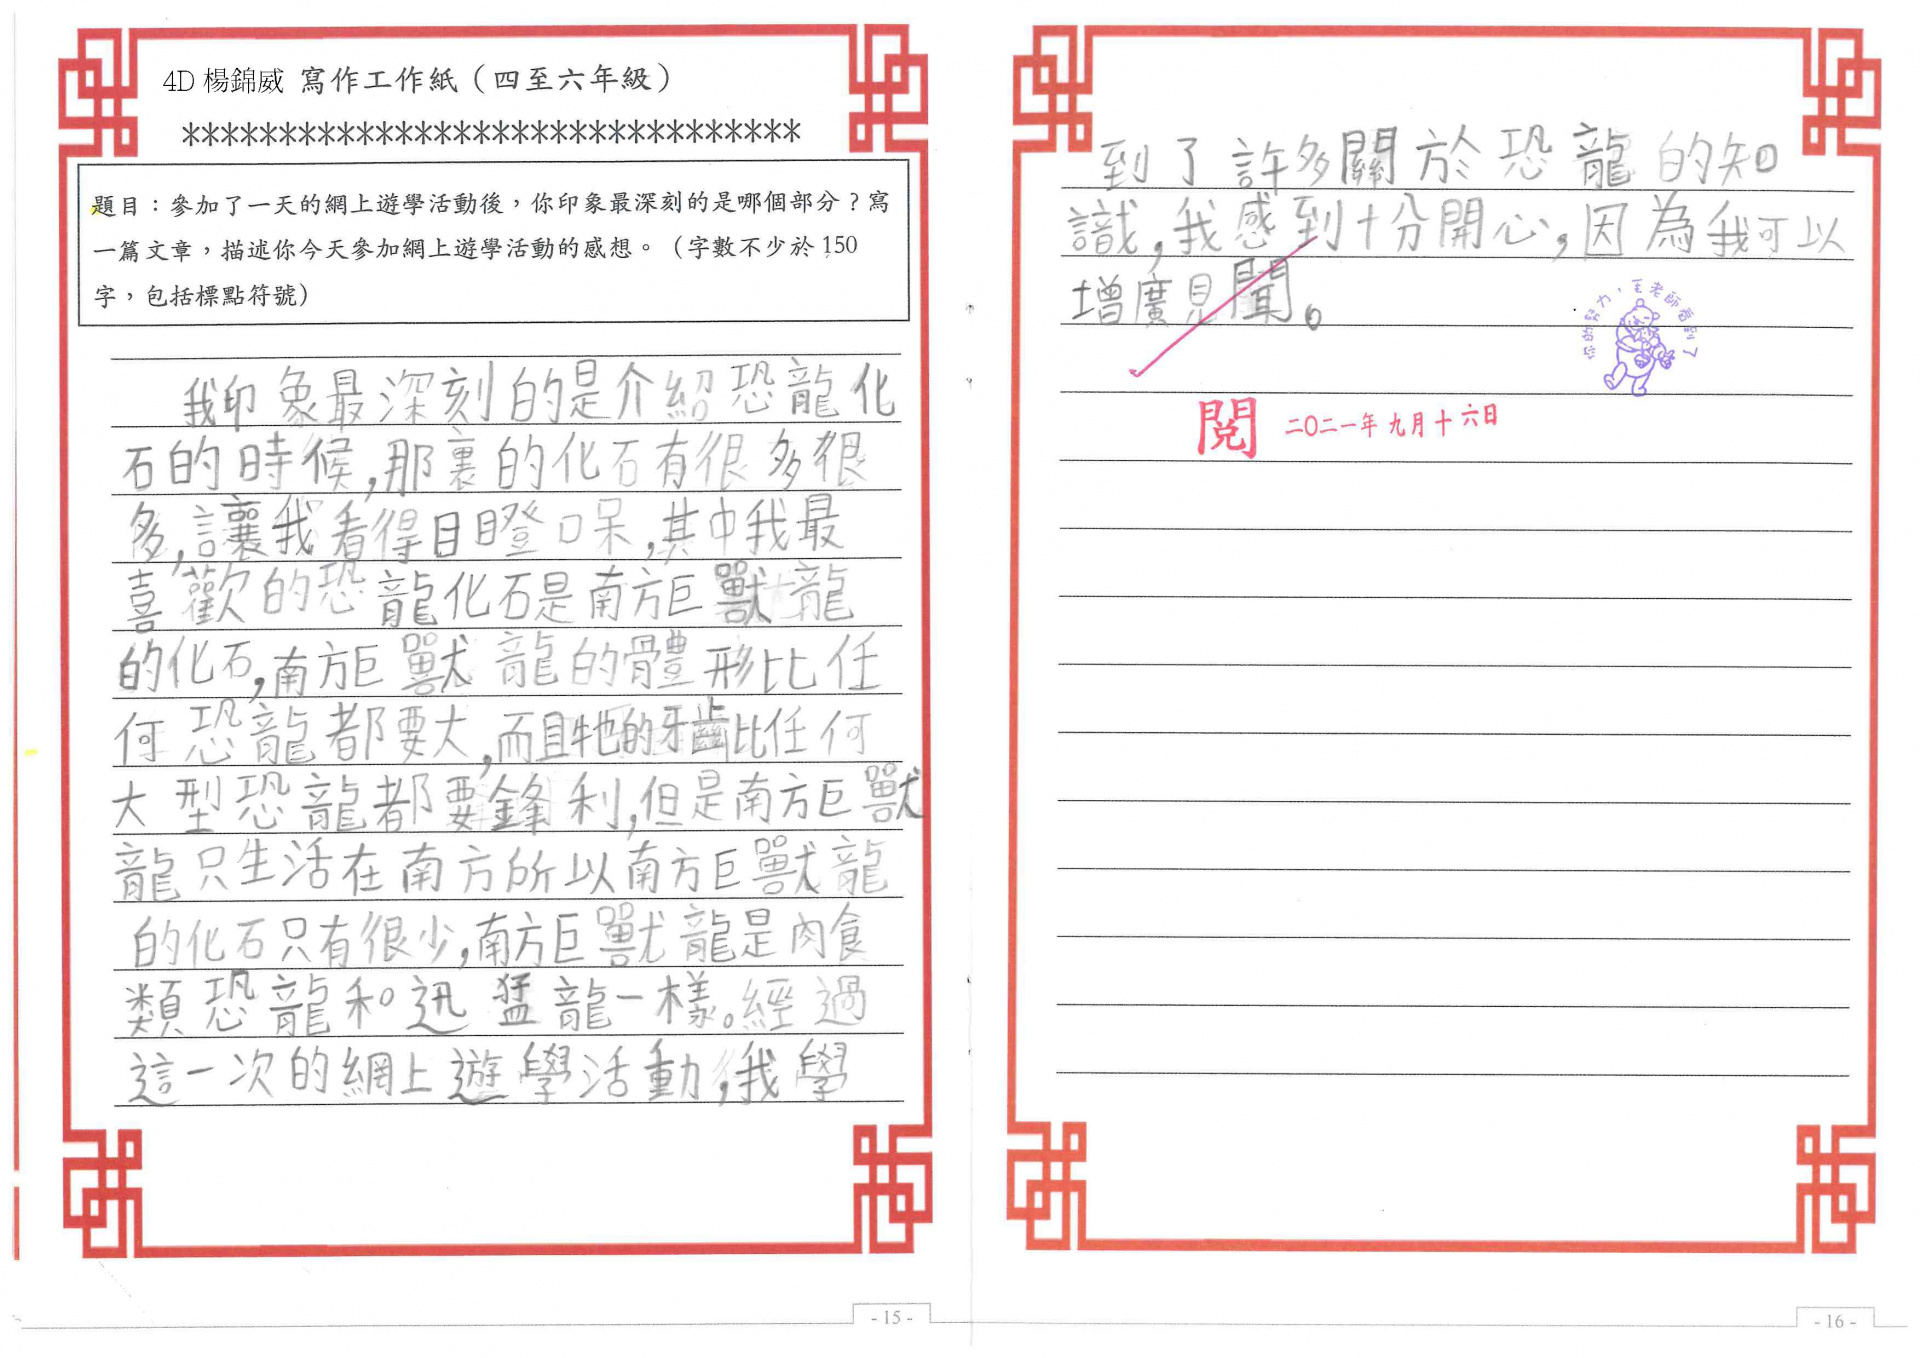 4D 楊錦威 寫作工作紙（四至六年級）
********************************
題目：參加了一天的網上遊學活動後，你印象最深刻的是哪個部分？寫
一篇文章，描述你今天參加網上遊學活動的感想。（字數不少於 150
字，包括標點符號）
我印象最深刻的是介紹恐龍化
石的時候,那裏的化石有很多很
多,讓我看得目瞪口呆,其中我最
喜歡的恐龍化石是南方巨獸龍
的化石,南方巨獸龍的體形比任
何恐龍都要大,而且牠的牙齒比任何
大型恐龍都要鋒利,但是南方巨獸
龍只生活在南方所以南方巨獸龍
的化石只有很少,南方巨獸龍是肉食
類恐龍和迅猛龍一樣。經過
這一次的網上遊學活動,我學
- 15 -
到了許多關於恐龍的知
識,我感到十分開心,因為我可以
增廣見聞。
你的努力，王老師看到了
閱 二〇二一年九月十六日
- 16 -